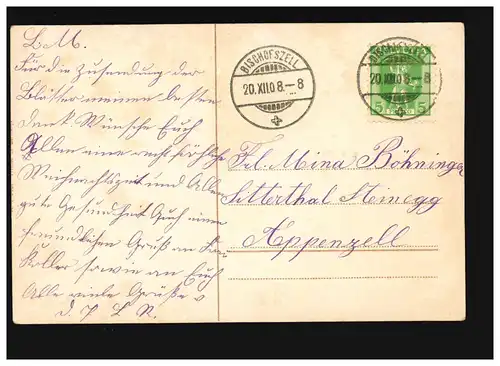 L. M.
Für die Zusendung der
Blätter meinen besten
Dank Wünsche Euch
Allen eine recht fröhliche
Weihnachtszeit und Allen
gute Gesundheit Auch einen
freundlichen Gruß an
Koller sowie an Euch
Alle viele Grüße
BISCHOFSZELL
20.XII.10 8.–8
20.XII.10 8.–8
5 5
Frl. Mina Böhninger
Sitterthal Steinegg
Appenzell